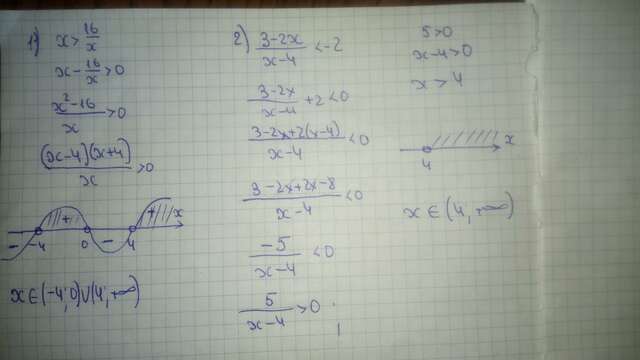 1) x > 16/x
x - 16/x > 0
x² - 16 / x > 0
(x-4)(x+4) / x > 0
+ + x
- -4 0 - 4
x ∈ (-4; 0) ∪ (4; +∞)
2) 3-2x / x-4 < -2
3-2x / x-4 + 2 < 0
3-2x+2(x-4) / x-4 < 0
3-2x+2x-8 / x-4 < 0
-5 / x-4 < 0
5 / x-4 > 0
5 > 0
x-4 > 0
x > 4
4 x
x ∈ (4; +∞)